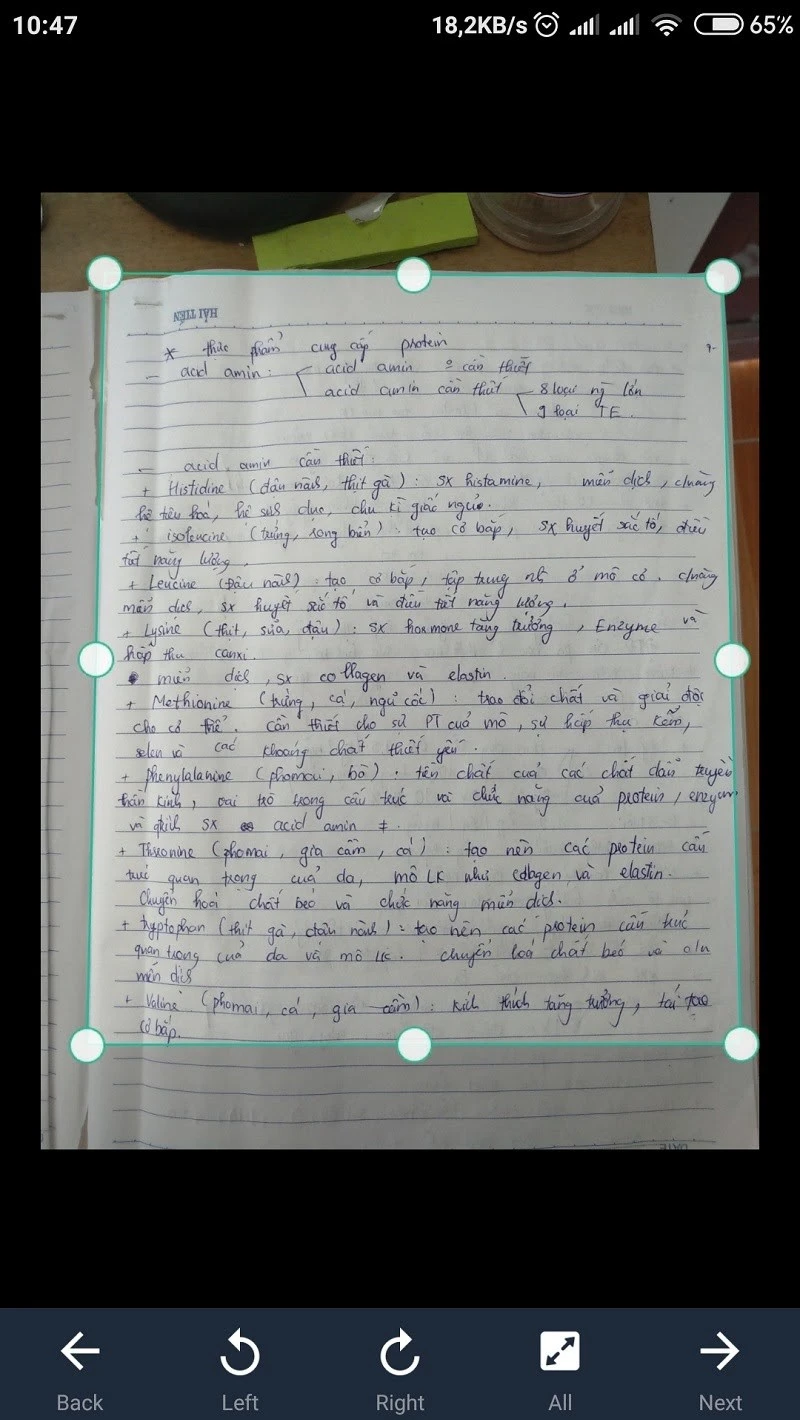 10:47 18,2KB/s 65%
HẢI TIẾN
* thực phẩm cung cấp protein
– acid amin : acid amin o cần thiết
acid amin cần thiết 8 loại ng lớn
9 loại TE.
– acid amin cần thiết :
+ Histidine (đậu nành, thịt gà) : sx histamine, miễn dịch,
hệ tiêu hoá, hệ sinh dục, chu kì giấc ngủ.
+ isoleucine (trứng, rong biển) : tạo cơ bắp, sx huyết sắc tố, điều
tiết năng lượng.
+ Leucine (Đậu nành) : tạo cơ bắp, tập trung ở mô cơ.
miễn dịch, sx huyết sắc tố và điều tiết năng lượng.
+ Lysine (thịt, sữa, đậu) : sx hormone tăng trưởng, Enzyme và
hấp thu canxi.
miễn dịch, sx collagen và elastin.
+ Methionine (trứng, cá, ngũ cốc) : trao đổi chất và giải độc
cho cơ thể. cần thiết cho sự PT của mô, sự hấp thụ kẽm,
selen và các khoáng chất thiết yếu.
+ Phenylalanine (phomai, bò) : tiền chất của các chất dẫn truyền
thần kinh, vai trò trong cấu trúc và chức năng của protein, enzym
và sx acid amin ≠.
+ Threonine (phomai, gia cầm, cá) : tạo nên các protein cấu
trúc quan trọng của da, mô LK như collagen và elastin.
Chuyển hoá chất béo và chức năng miễn dịch.
+ tryptophan (thịt gà, đậu nành) : tạo nên các protein cấu trúc
quan trọng của da và mô LK. chuyển hoá chất béo và
miễn dịch
+ Valine (phomai, cá, gia cầm) : kích thích tăng trưởng, tái tạo
cơ bắp.
DATE
Back Left Right All Next